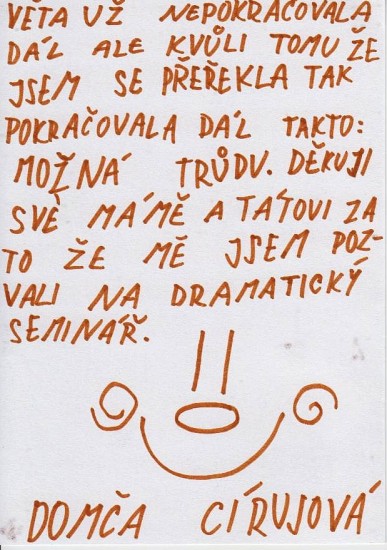 VĚTA UŽ NEPOKRAČOVALA
DÁL ALE KVŮLI TOMU ŽE
JSEM SE PŘEŘEKLA TAK
POKRAČOVALA DÁL TAKTO:
MOŽNÁ TRŮDV. DĚKUJI
SVÉ MÁMĚ A TÁTOVI ZA
TO ŽE MĚ JSEM POZ-
VALI NA DRAMATICKÝ
SEMINÁŘ.
DOMČA CÍRUJOVÁ